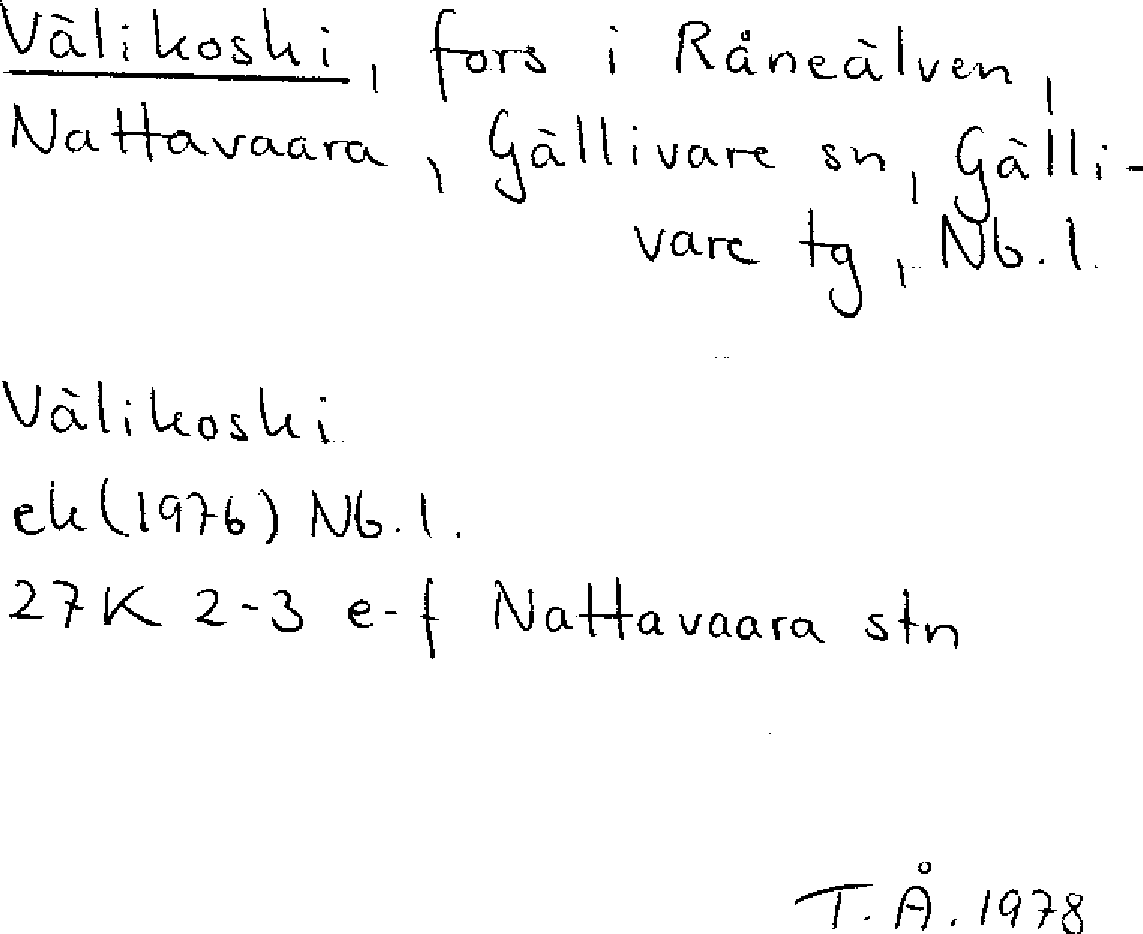 Välikoski, fors i Råneälven,
Nattavaara, Gällivare sn, Gälli-
vare tg, Nb. l.
Välikoski
ek (1976) Nb. l.
27K 2-3 e-f Nattavaara stn
T. Å. 1978